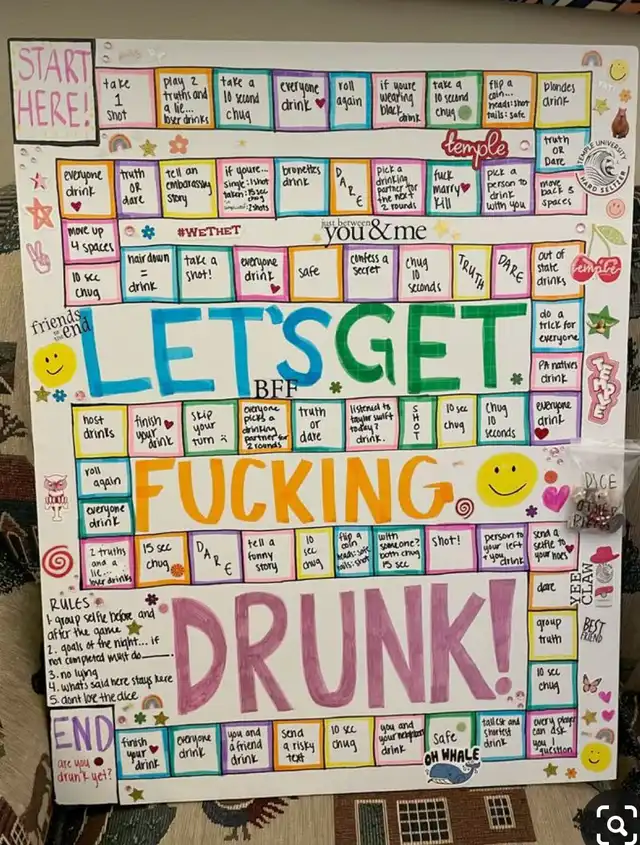 START
HERE!
take
1
shot
play 2
truths and
a lie...
loser drinks
take a
10 second
chug
everyone
drink
roll
again
if youre
wearing
black
drink
take a
10 second
chug
flip a
coin...
heads: shot
tails: safe
blondes
drink
temple
truth
or
Dare
TEMPLE UNIVERSITY
HARD SELTZER
everyone
drink
truth
or
dare
tell an
embarassing
story
if youre...
single: 1 shot
taken: 15 sec
chug
2 shots
brunettes
drink
DARE
pick a
drinking
partner for
the next
2 rounds
fuck
marry
kill
pick a
person to
drink
with you
move
back 3
spaces
move up
4 spaces
#WETHET
just between
you & me
10 sec
chug
hair down
=
drink
take a
shot!
everyone
drink
safe
confess a
secret
chug
10
seconds
TRUTH
DARE
out of
state
drinks
temple
friends
to the
end
LET'S GET
BFF
do a
trick for
everyone
PA natives
drink
TEMPLE
host
drinks
finish
your
drink
skip
your
turn :(
everyone
picks a
drinking
partner for
2 rounds
truth
or
dare
listened to
taylor swift
today?
drink.
SHOT
10 sec
chug
chug
10
seconds
everyone
drink
roll
again
everyone
drink
FUCKING
DICE
&
OTHER
PIECES
2 truths
and a
lie...
loser drinks
15 sec
chug
DARE
tell a
funny
story
10
sec
chug
flip a
coin
heads: safe
tails: shot
with
someone?
both chug
15 sec
shot!
person to
your left
& you
drink
send a
selfie to
your hoes
YEE
CLAW
RULES
1. group selfie before and
after the game
2. goals of the night... if
not completed must do ____.
3. no lying
4. what's said here stays here
5. dont lose the dice
DRUNK!
dare
group
truth
BEST
FRIEND
10 sec
chug
END
are you
drunk yet?
finish
your
drink
everyone
drink
you and
a friend
drink
send
a risky
text
10 sec
chug
you and
your neighbor
drink
safe
OH WHALE
tallest and
shortest
drink
every player
can ask
you 1
question